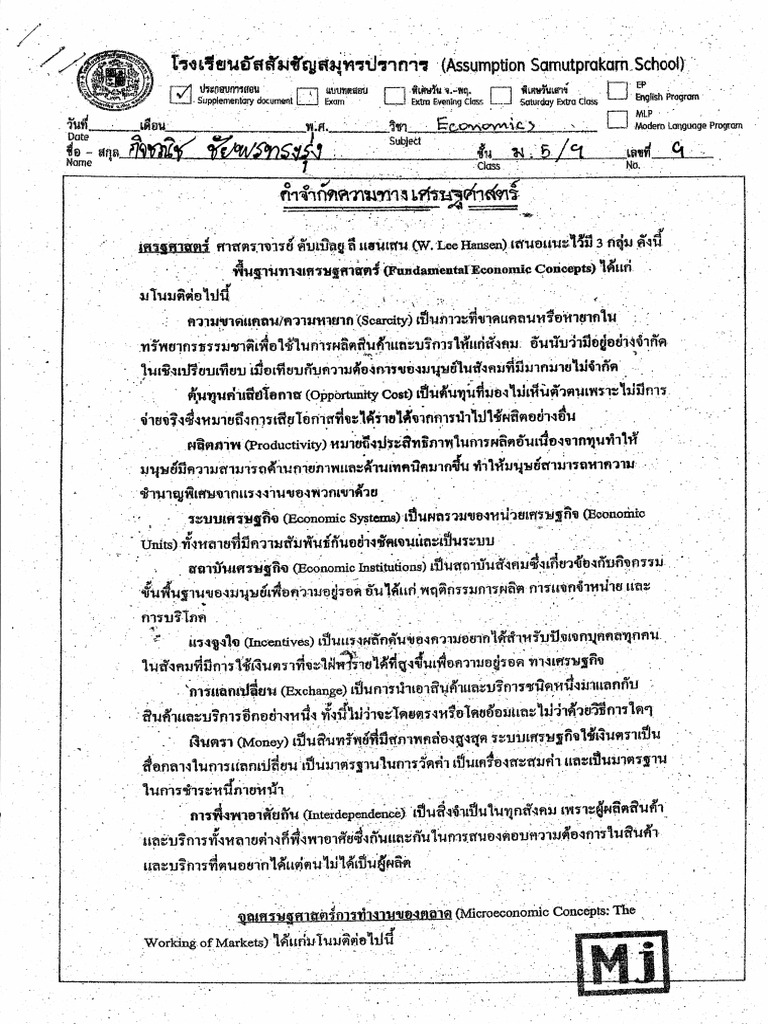 โรงเรียนอัสสัมชัญสมุทรปราการ (Assumption Samutprakarn School)
ประกอบการสอน แบบทดสอบ พิเศษวัน จ.-พฤ. พิเศษวันเสาร์ EP
Supplementary document Exam Extra Evening Class Saturday Extra Class English Program
MLP
วันที่ เดือน พ.ศ. วิชา Economics Modern Language Program
Date Subject
ชื่อ - สกุล ชั้น ม.5/9 เลขที่ 9
Name Class No.
คำจำกัดความทางเศรษฐศาสตร์
เศรฐศาสตร์ ศาสตราจารย์ ดับเบิลยู ลี แฮนเสน (W. Lee Hansen) เสนอแนะไว้มี 3 กลุ่ม ดังนี้
พื้นฐานทางเศรษฐศาสตร์ (Fundamental Economic Concepts) ได้แก่
มโนมติต่อไปนี้
ความขาดแคลน/ความหายาก (Scarcity) เป็นภาวะที่ขาดแคลนหรือหายากใน
ทรัพยากรธรรมชาติเพื่อใช้ในการผลิตสินค้าและบริการให้แก่สังคม อันนับว่ามีอยู่อย่างจำกัด
ในเชิงเปรียบเทียบ เมื่อเทียบกับความต้องการของมนุษย์ในสังคมที่มีมากมายไม่จำกัด
ต้นทุนค่าเสียโอกาส (Opportunity Cost) เป็นต้นทุนที่มองไม่เห็นตัวตนเพราะไม่มีการ
จ่ายจริงซึ่งหมายถึงการเสียโอกาสที่จะได้รายได้จากการนำไปใช้ผลิตอย่างอื่น
ผลิตภาพ (Productivity) หมายถึงประสิทธิภาพในการผลิตอันเนื่องจากทุนทำให้
มนุษย์มีความสามารถด้านกายภาพและด้านเทคนิคมากขึ้น ทำให้มนุษย์สามารถหาความ
ชำนาญพิเศษจากแรงงานของพวกเขาด้วย
ระบบเศรษฐกิจ (Economic Systems) เป็นผลรวมของหน่วยเศรษฐกิจ (Economic
Units) ทั้งหลายที่มีความสัมพันธ์กันอย่างชัดเจนและเป็นระบบ
สถาบันเศรษฐกิจ (Economic Institutions) เป็นสถาบันสังคมซึ่งเกี่ยวข้องกับกิจกรรม
ขั้นพื้นฐานของมนุษย์เพื่อความอยู่รอด อันได้แก่ พฤติกรรมการผลิต การแจกจำหน่าย และ
การบริโภค
แรงจูงใจ (Incentives) เป็นแรงผลักดันของความอยากได้สำหรับปัจเจกบุคคลทุกคน
ในสังคมที่มีการใช้เงินตราที่จะใฝ่หารายได้ที่สูงขึ้นเพื่อความอยู่รอด ทางเศรษฐกิจ
การแลกเปลี่ยน (Exchange) เป็นการนำเอาสินค้าและบริการชนิดหนึ่งมาแลกกับ
สินค้าและบริการอีกอย่างหนึ่ง ทั้งนี้ไม่ว่าจะโดยตรงหรือโดยอ้อมและไม่ว่าด้วยวิธีการใดๆ
เงินตรา (Money) เป็นสินทรัพย์ที่มีสภาพคล่องสูงสุด ระบบเศรษฐกิจใช้เงินตราเป็น
สื่อกลางในการแลกเปลี่ยน เป็นมาตรฐานในการวัดค่า เป็นเครื่องสะสมค่า และเป็นมาตรฐาน
ในการชำระหนี้ภายหน้า
การพึ่งพาอาศัยกัน (Interdependence) เป็นสิ่งจำเป็นในทุกสังคม เพราะผู้ผลิตสินค้า
และบริการทั้งหลายต่างก็พึ่งพาอาศัยซึ่งกันและกันในการสนองตอบความต้องการในสินค้า
และบริการที่ตนอยากได้แต่ตนไม่ได้เป็นผู้ผลิต
จุลเศรษฐศาสตร์การทำงานของตลาด (Microeconomic Concepts: The
Working of Markets) ได้แก่มโนมติต่อไปนี้
Mj